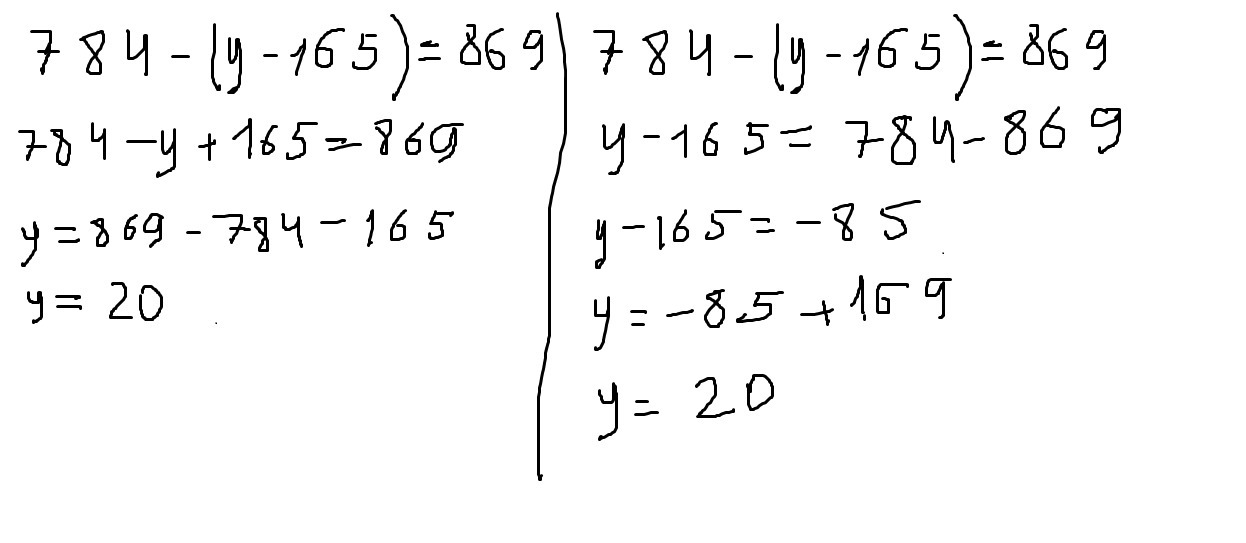 784 - (y - 165) = 869
784 - y + 165 = 869
y = 869 - 784 - 165
y = 20
784 - (y - 165) = 869
y - 165 = 784 - 869
y - 165 = -85
y = -85 + 169
y = 20